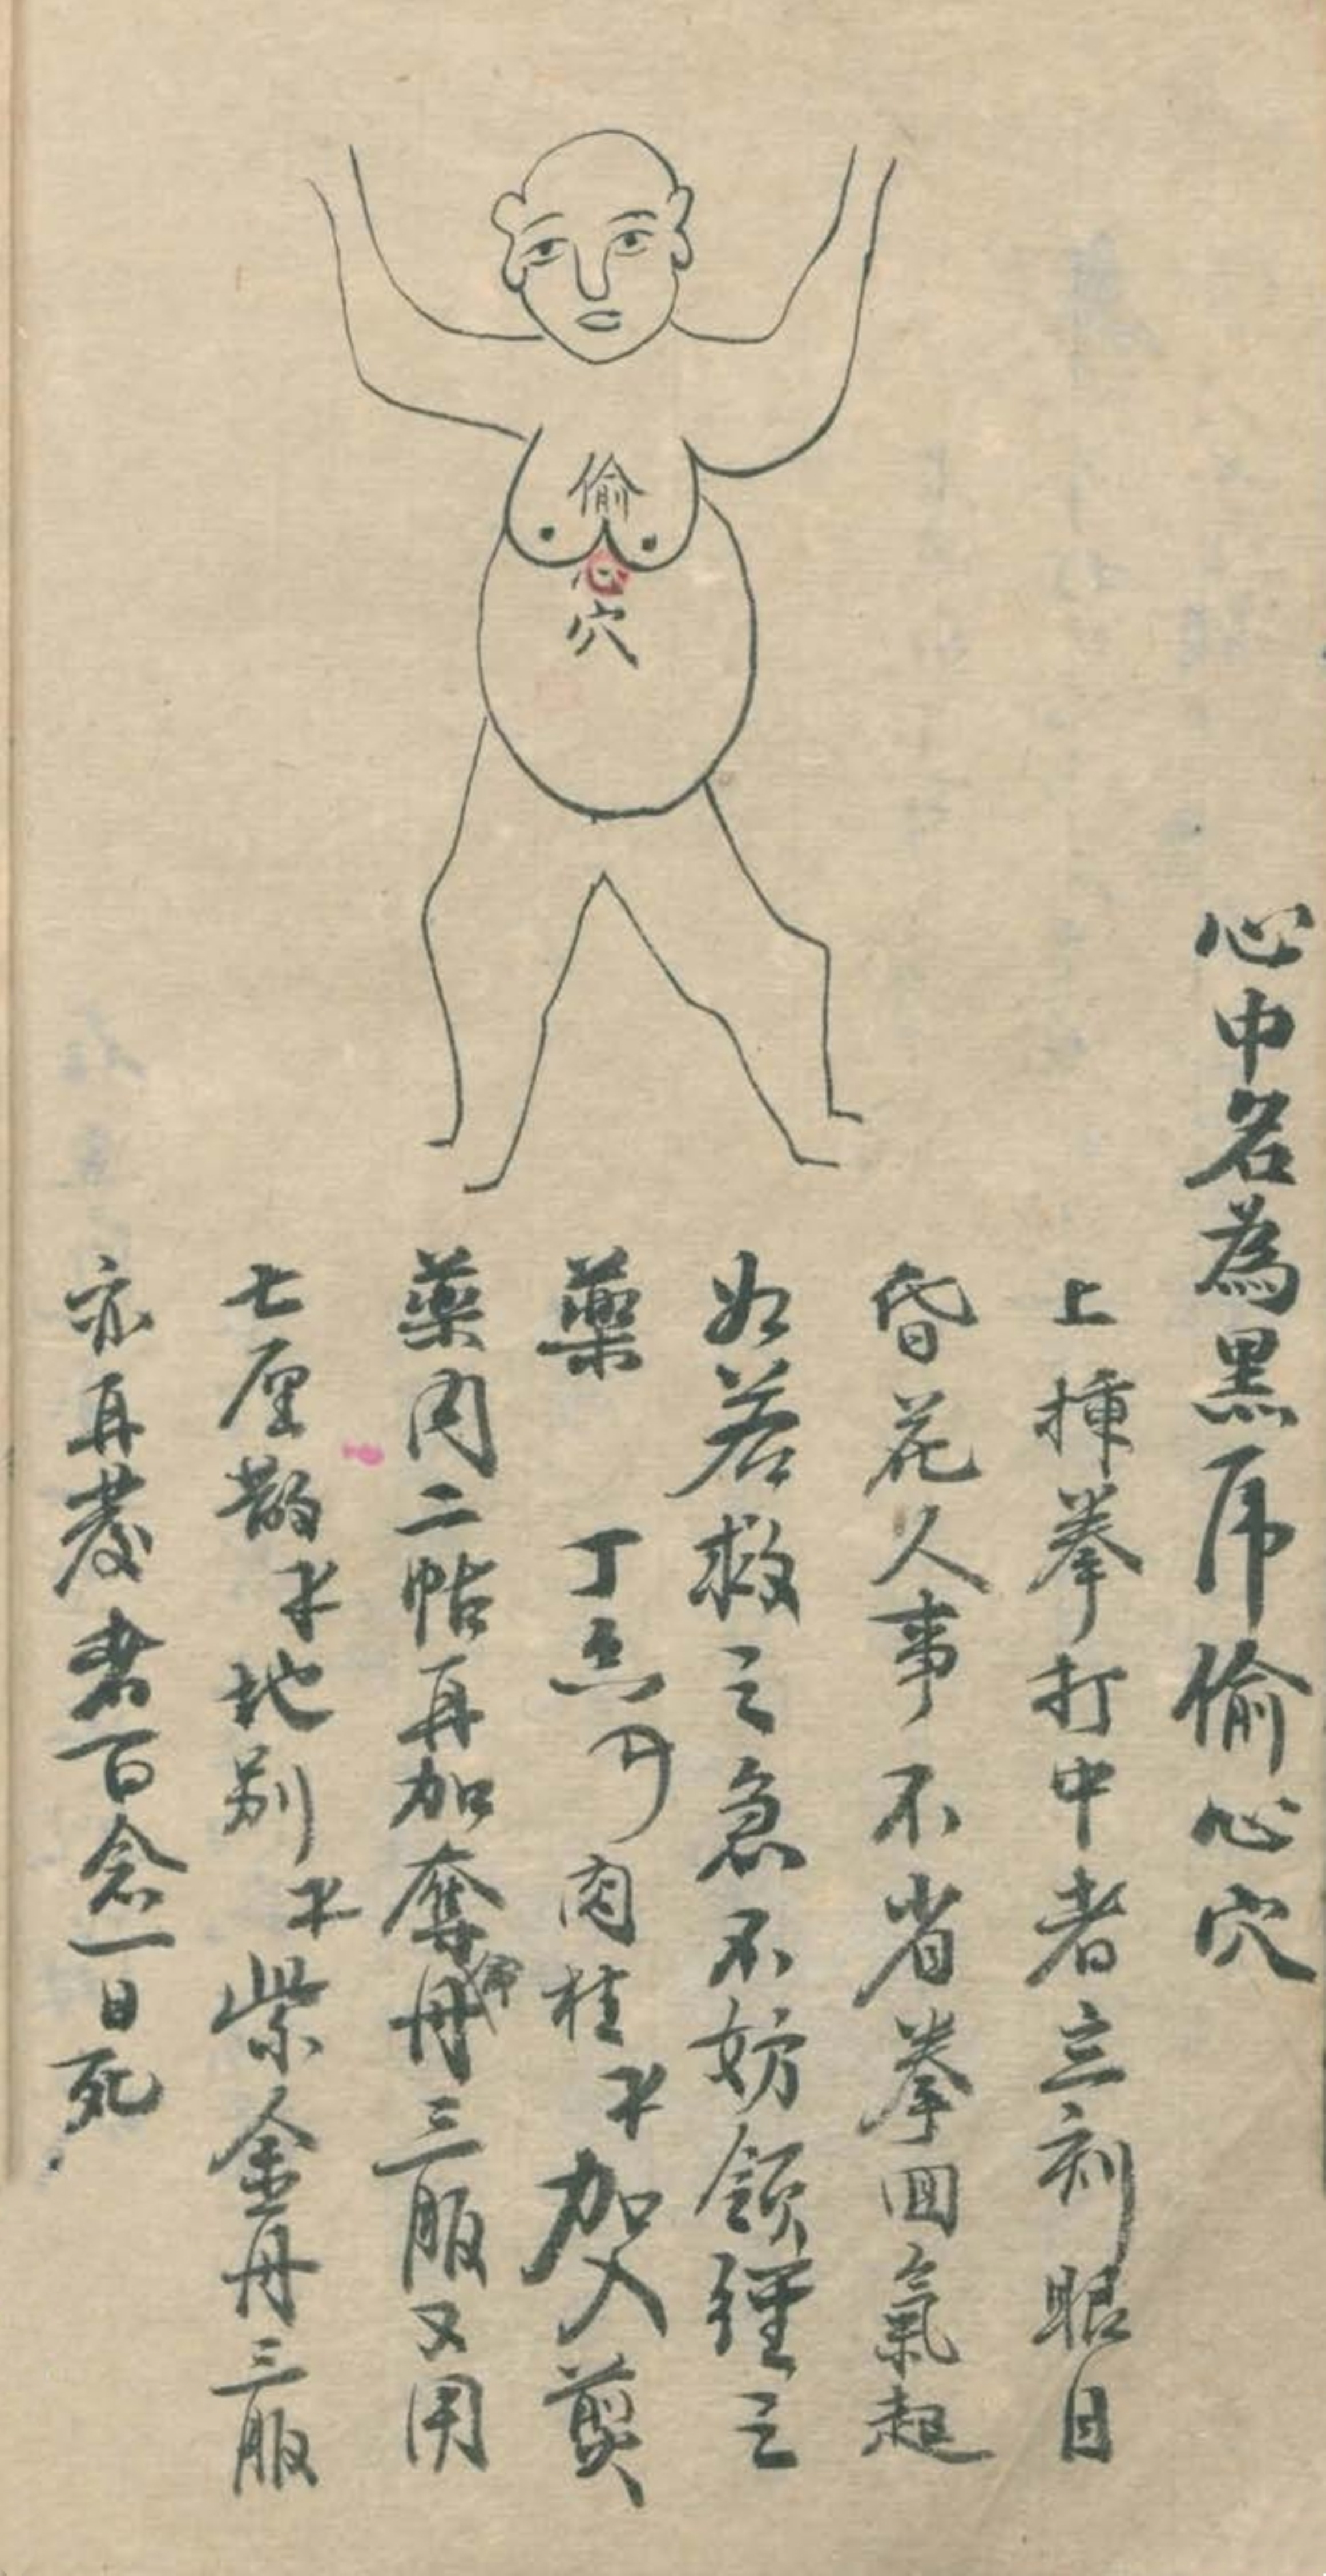 偷
心
穴
心中名為黑虎偷心穴
上插拳打中者立刻眼目
昏花人事不省拳回氣起
如若救之急不妨領經之
藥 丁 肉桂 加入煎
藥肉二帖再加奪命丹三服又用
七厘散 地別 紫金丹三服
亦再發者百念一日死